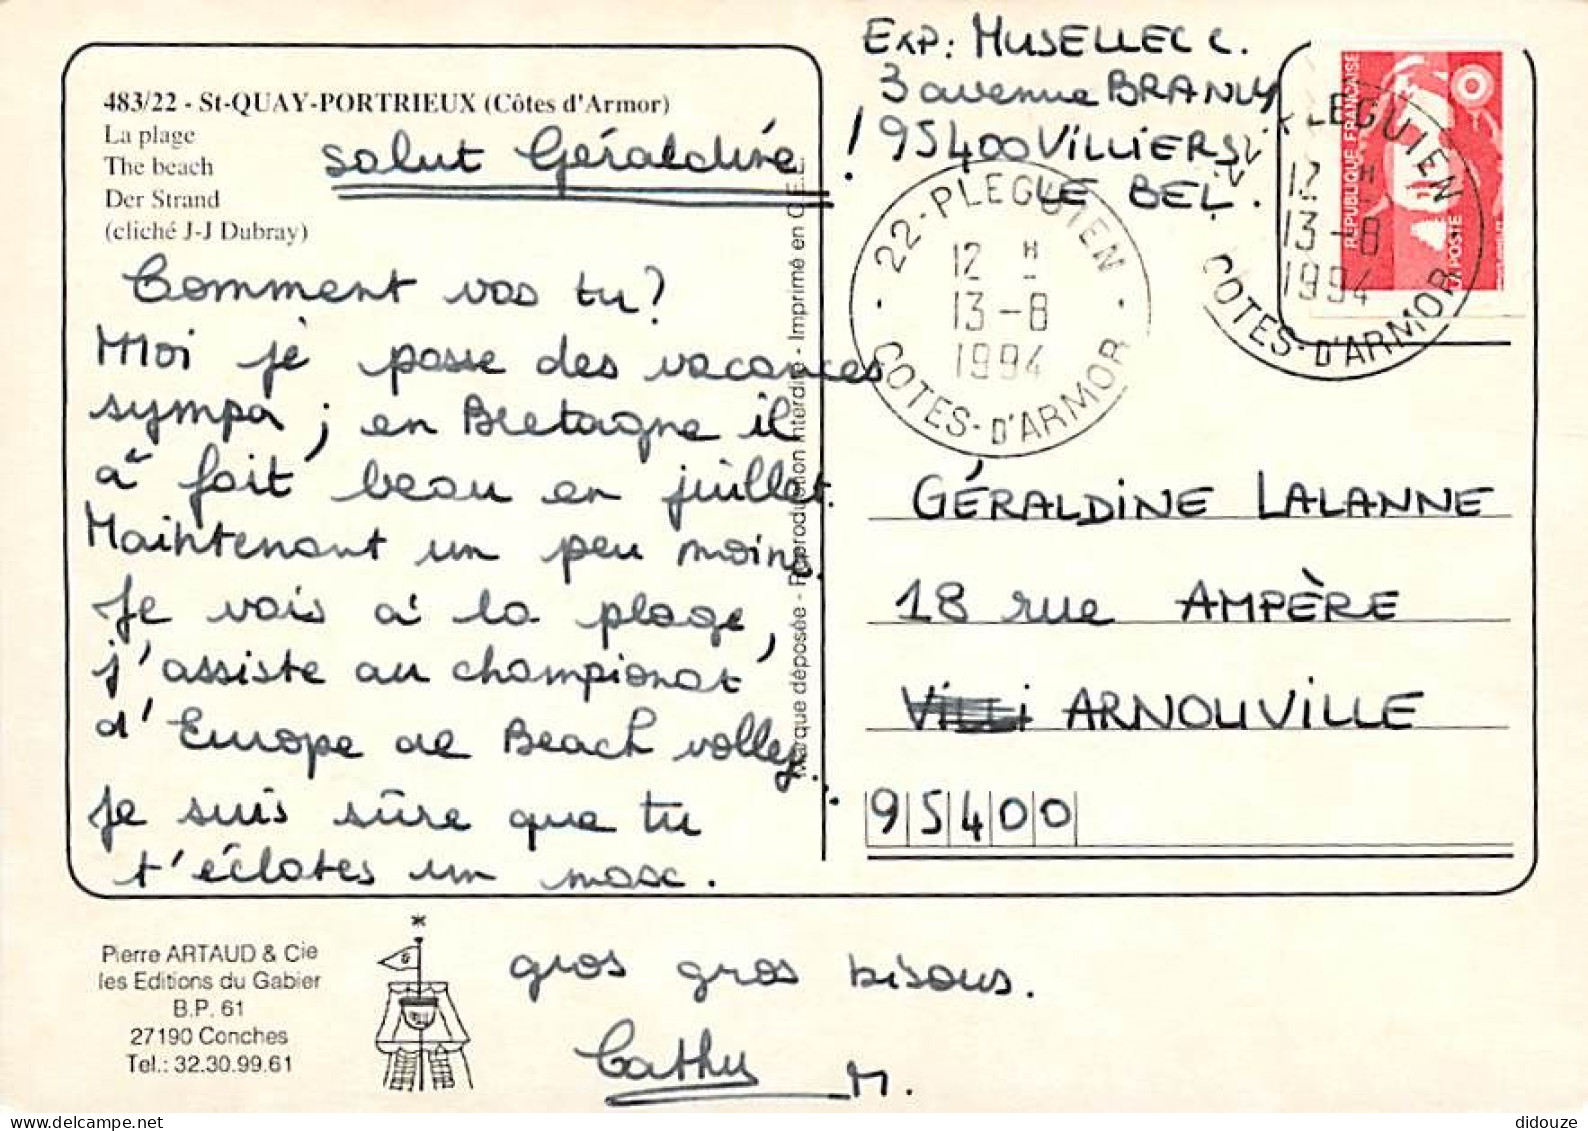 Exp: MUSELLEC C.
3 avenue BRANLY
95400 VILLIERS
LE BEL.
483/22 - St-QUAY-PORTRIEUX (Côtes d'Armor)
La plage
The beach
Der Strand
(cliché J-J Dubray)
salut Géraldine !
Comment vas tu ?
Moi je passe des vacances
sympa ; en Bretagne il
a fait beau en juillet.
Maintenant un peu moins.
Je vais à la plage,
j'assiste au championnat
d'Europe de Beach volley.
Je suis sûre que tu
t'éclates un max.
gros gros bisous.
Cathy M.
Marque déposée - Reproduction interdite - Imprimé en C.E.E.
22-PLEGUIEN
12 H
13-8
1994
COTES-D'ARMOR
22-PLEGUIEN
12 H
13-8
1994
COTES-D'ARMOR
REPUBLIQUE FRANÇAISE
LA POSTE
GÉRALDINE LALANNE
18 rue AMPÈRE
ARNOUVILLE
95400
Pierre ARTAUD & Cie
les Editions du Gabier
B.P. 61
27190 Conches
Tel.: 32.30.99.61
didouze